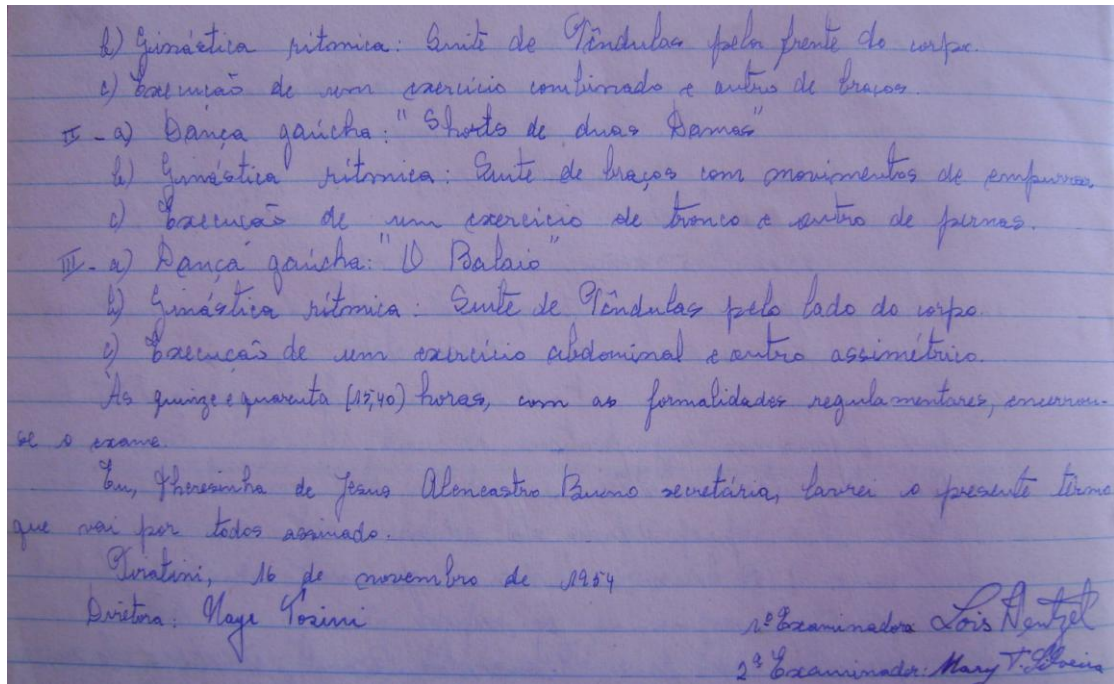 b) Ginástica rítmica: Suite de Pêndulas pela frente do corpo.
c) Execução de um exercício combinado e outro de braços.
II - a) Dança gaúcha: "Shorts de duas Damas"
b) Ginástica rítmica: Suite de braços com movimentos de empurrar
c) Execução de um exercício de tronco e outro de pernas.
III - a) Dança gaúcha: "O Balaio"
b) Ginástica rítmica: Suite de Pêndulas pelo lado do corpo
c) Execução de um exercício abdominal e outro assimétrico.
Às quinze e quarenta (15,40) horas, com as formalidades regulamentares, encerrou-
se o exame.
Eu, Theresinha de Jesus Alencastro Bueno secretária, lavrei o presente têrmo
que vai por todos assinado.
Piratini, 16 de novembro de 1954
Diretora:
1ª Examinadora Lois Hentzel
2ª Examinador: Mary T. Silveira